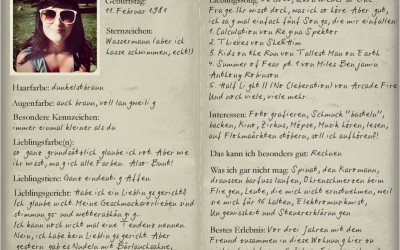 Geburtstag:
11. Februar 1981
Sternzeichen:
Wassermann (aber ich
hasse schwimmen, echt!)
Haarfarbe: dunkelstbraun
Augenfarbe: auch braun, voll langweilig
Besondere Kennzeichen:
immer einmal kleiner als du
Lieblingsfarbe(n):
so ganz grundsätzlich glaube ich rot. Aber wie
ihr wisst, mag ich alle Farben. Also: Bunt!
Lieblingstiere: Ganz eindeutig Affen.
Lieblingsgericht: Habe ich ein Lieblingsgericht?
Ich glaube nicht. Meine Geschmacksvorlieben sind
stimmungs- und wetterabhängig.
Ich kann noch nicht mal eine Tendenz nennen.
Nein, ich habe kein Lieblingsgericht. Aber
gestern gab es Nudeln mit Bärlauchsahne,
Frage. Ihr wisst doch, was ich so höre. Aber gut,
ich sag mal einfach fünf Songs, die mir einfallen:
1. Calculation von Regina Spektor
2. Thieves von She&Him
3. Kids on the Run von Tallest Man on Earth
4. Summer of Fear pt. 1 von Miles Benjamin
Anthony Robinson
5. Half Light II (No Cleberation) von Arcade Fire
Und noch viele, viele mehr...
Interessen: Fotografieren, Schmuck "basteln",
backen, Kino, Zirkus, Möpse, Musik hören, lesen,
auf Flohmärkten stöbern, soll ich aufhören?!
Das kann ich besonders gut: Rechnen
Was ich gar nicht mag: Spinat, den Farmarama,
draussen barfuss laufen, Ohrensausen beim
Fliegen, Leute, die mich nicht ernstnehmen, weil
sie mich für 16 halten, Elektromusik,
Ungewissheit und Steuererklärungen
Bestes Erlebnis: Vor drei Jahren mit dem
Freund zusammen in diese Wohnung hier zu